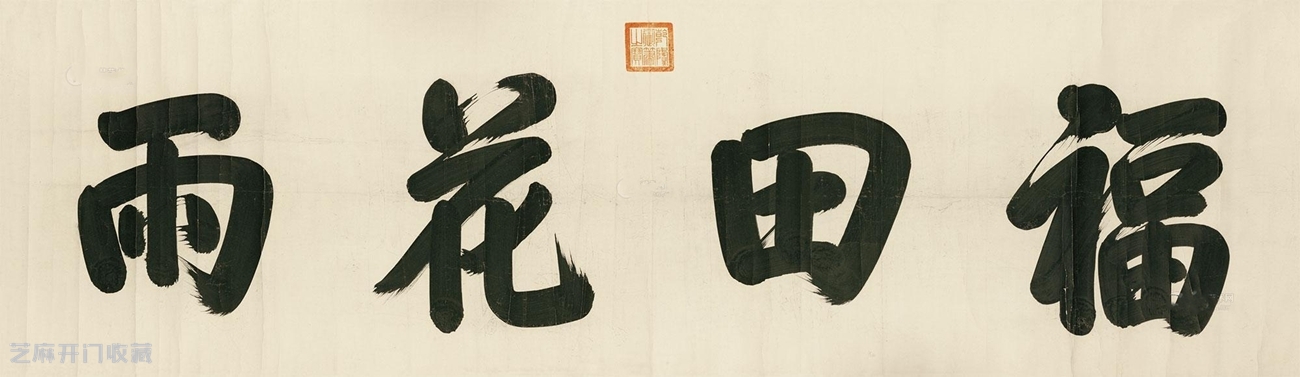 福田花雨
芝麻开门收藏